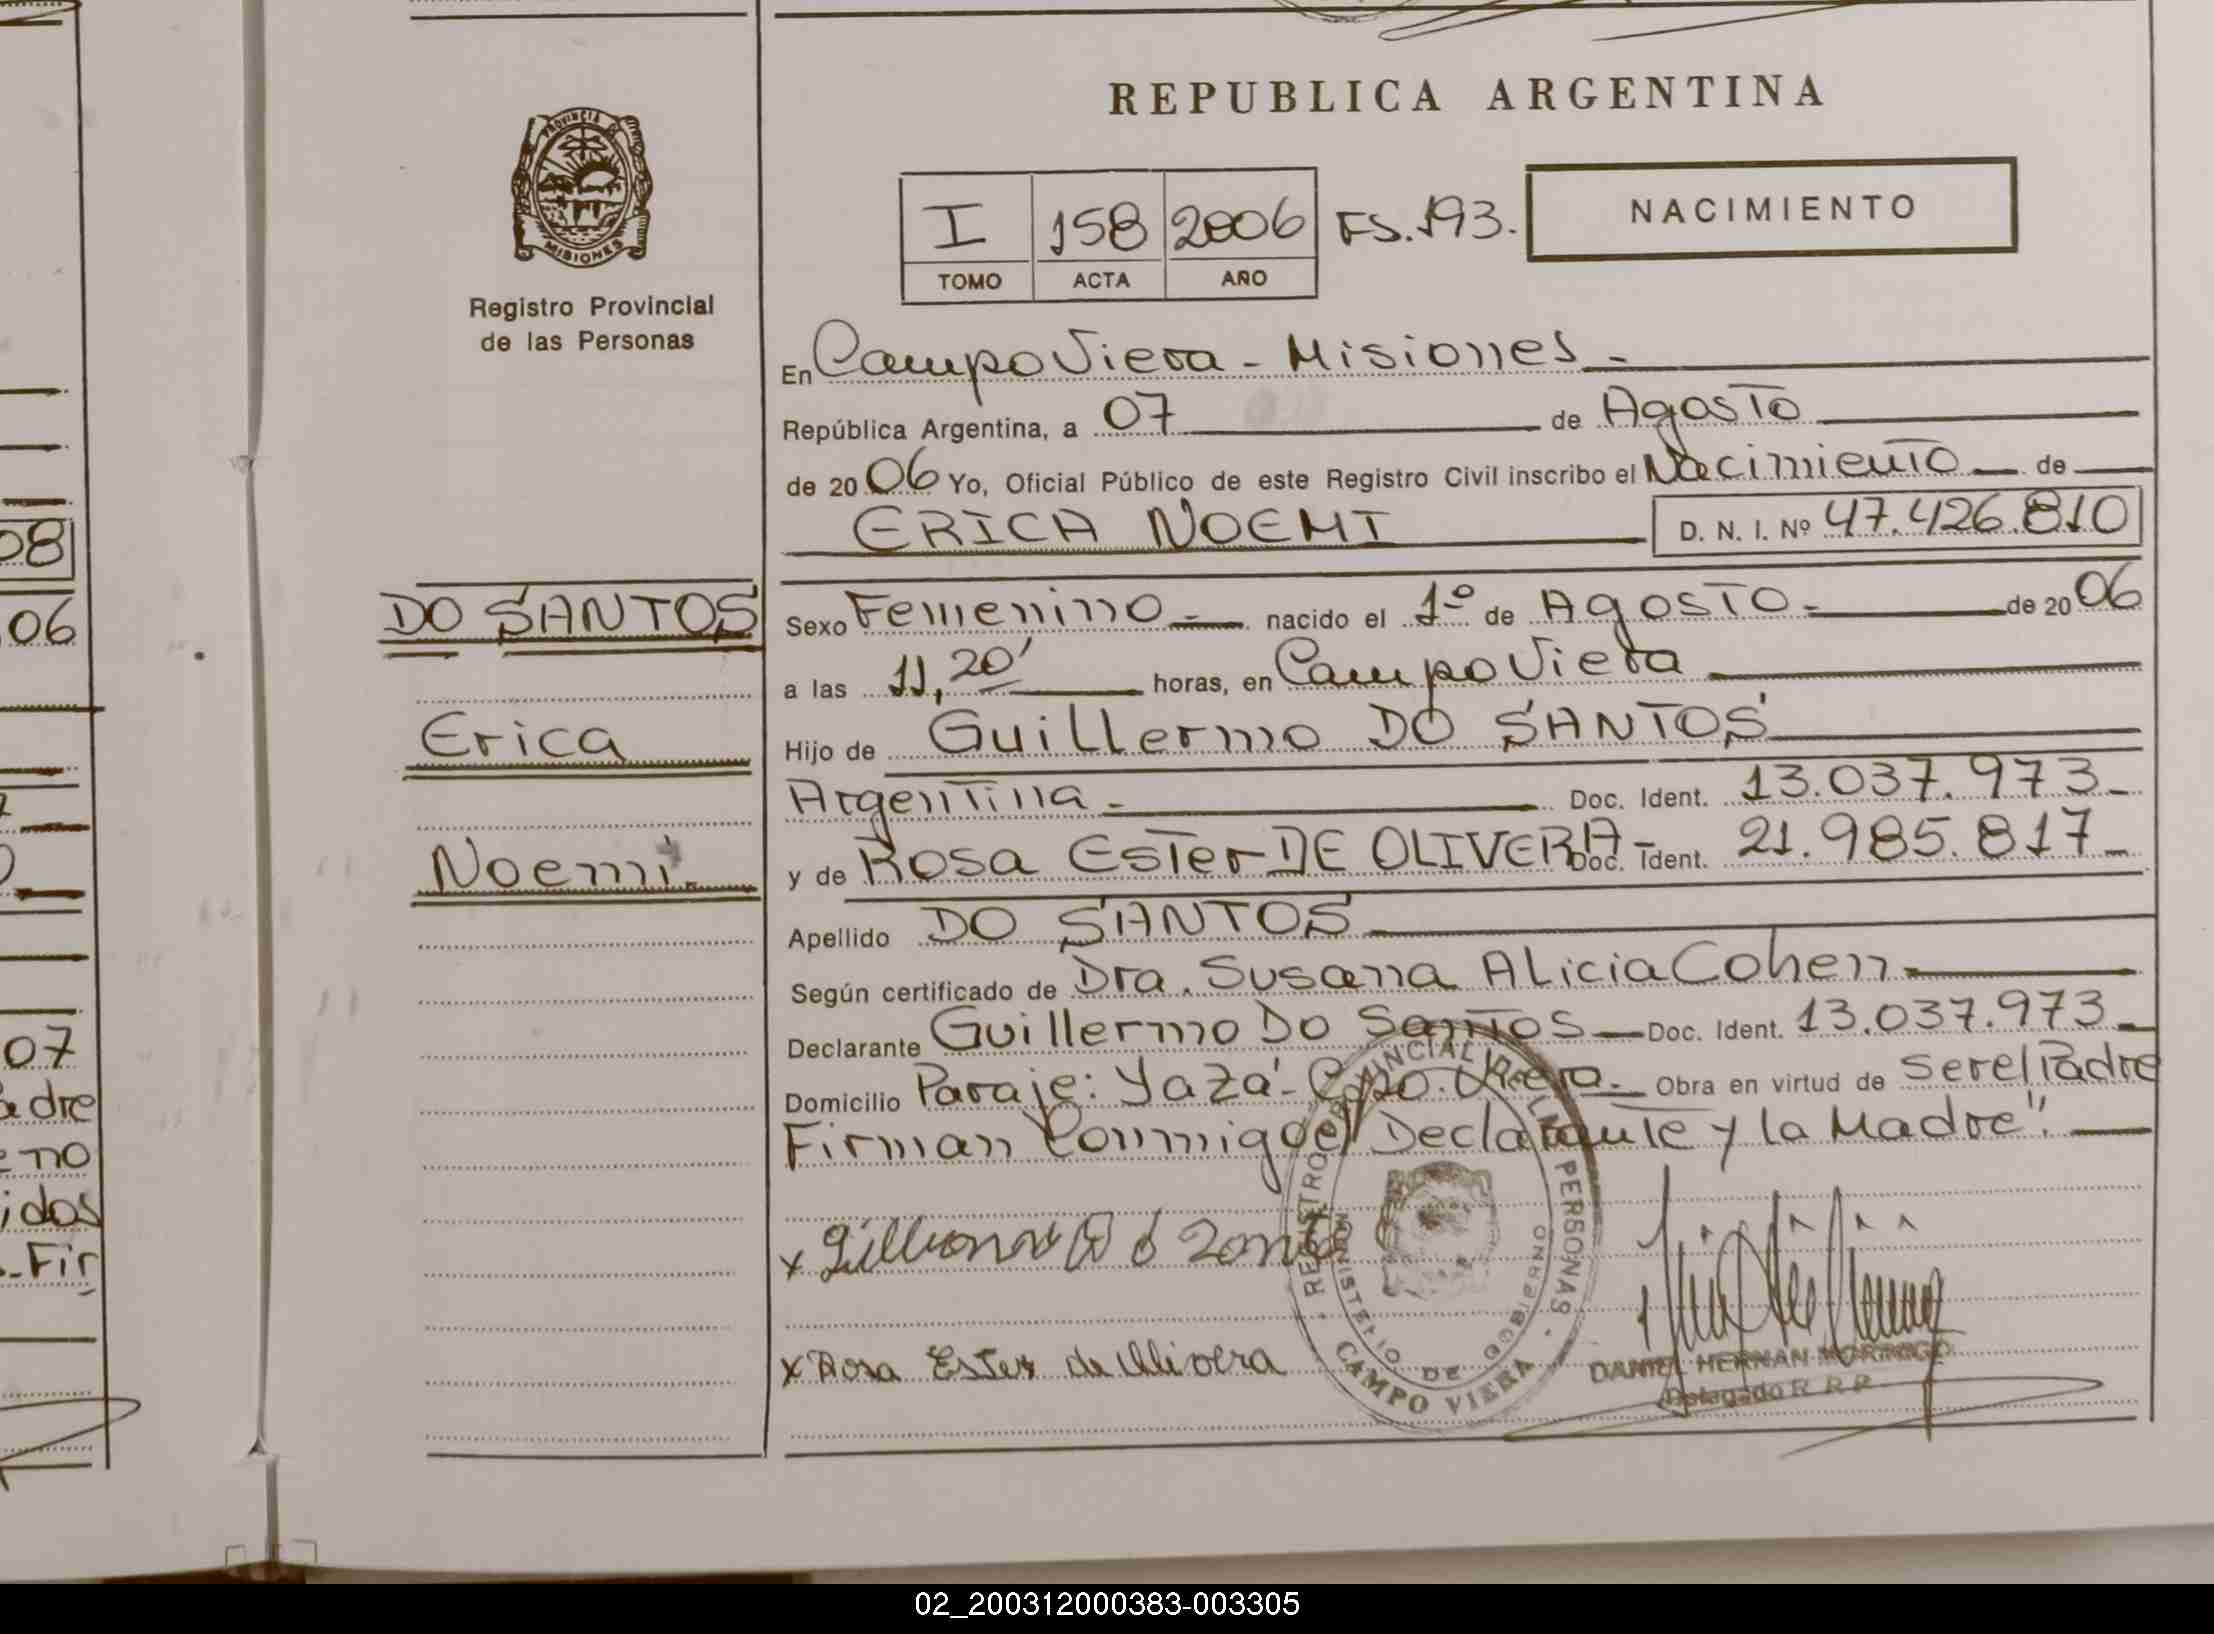 REPUBLICA ARGENTINA
PROVINCIA DE
MISIONES
Registro Provincial
de las Personas
I 158 2006 FS. 193.
TOMO ACTA AÑO
NACIMIENTO
En Campo Viera - Misiones -
República Argentina, a 07 de Agosto
de 20 06 Yo, Oficial Público de este Registro Civil inscribo el Nacimiento de
ERICA NOEMI D. N. I. Nº 47.426.810
DO SANTOS
Erica
Noemi.
Sexo Femenino - nacido el 1º de Agosto - de 20 06
a las 11,20' horas, en Campo Viera
Hijo de Guillermo DO SANTOS
Argentina - Doc. Ident. 13.037.973 -
y de Rosa Ester DE OLIVERA - Doc. Ident. 21.985.817 -
Apellido DO SANTOS
Según certificado de Dra. Susana Alicia Cohen
Declarante Guillermo Do Santos - Doc. Ident. 13.037.973 -
Domicilio Paraje: Yazá - Cpo. Viera. Obra en virtud de ser el Padre
Firman Conmigo el Declarante y la Madre".
x
x Rosa Ester de Olivera
REGISTRO PROVINCIAL DE LAS PERSONAS
MINISTERIO DE GOBIERNO
CAMPO VIERA
DANIEL HERNAN MORINIGO
Delegado R. R. P.
08
06
07
adre
eno
idos
-Fir
02_200312000383-003305